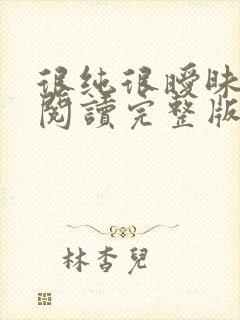 很純很曖昧
閱讀完整版
林杏兒